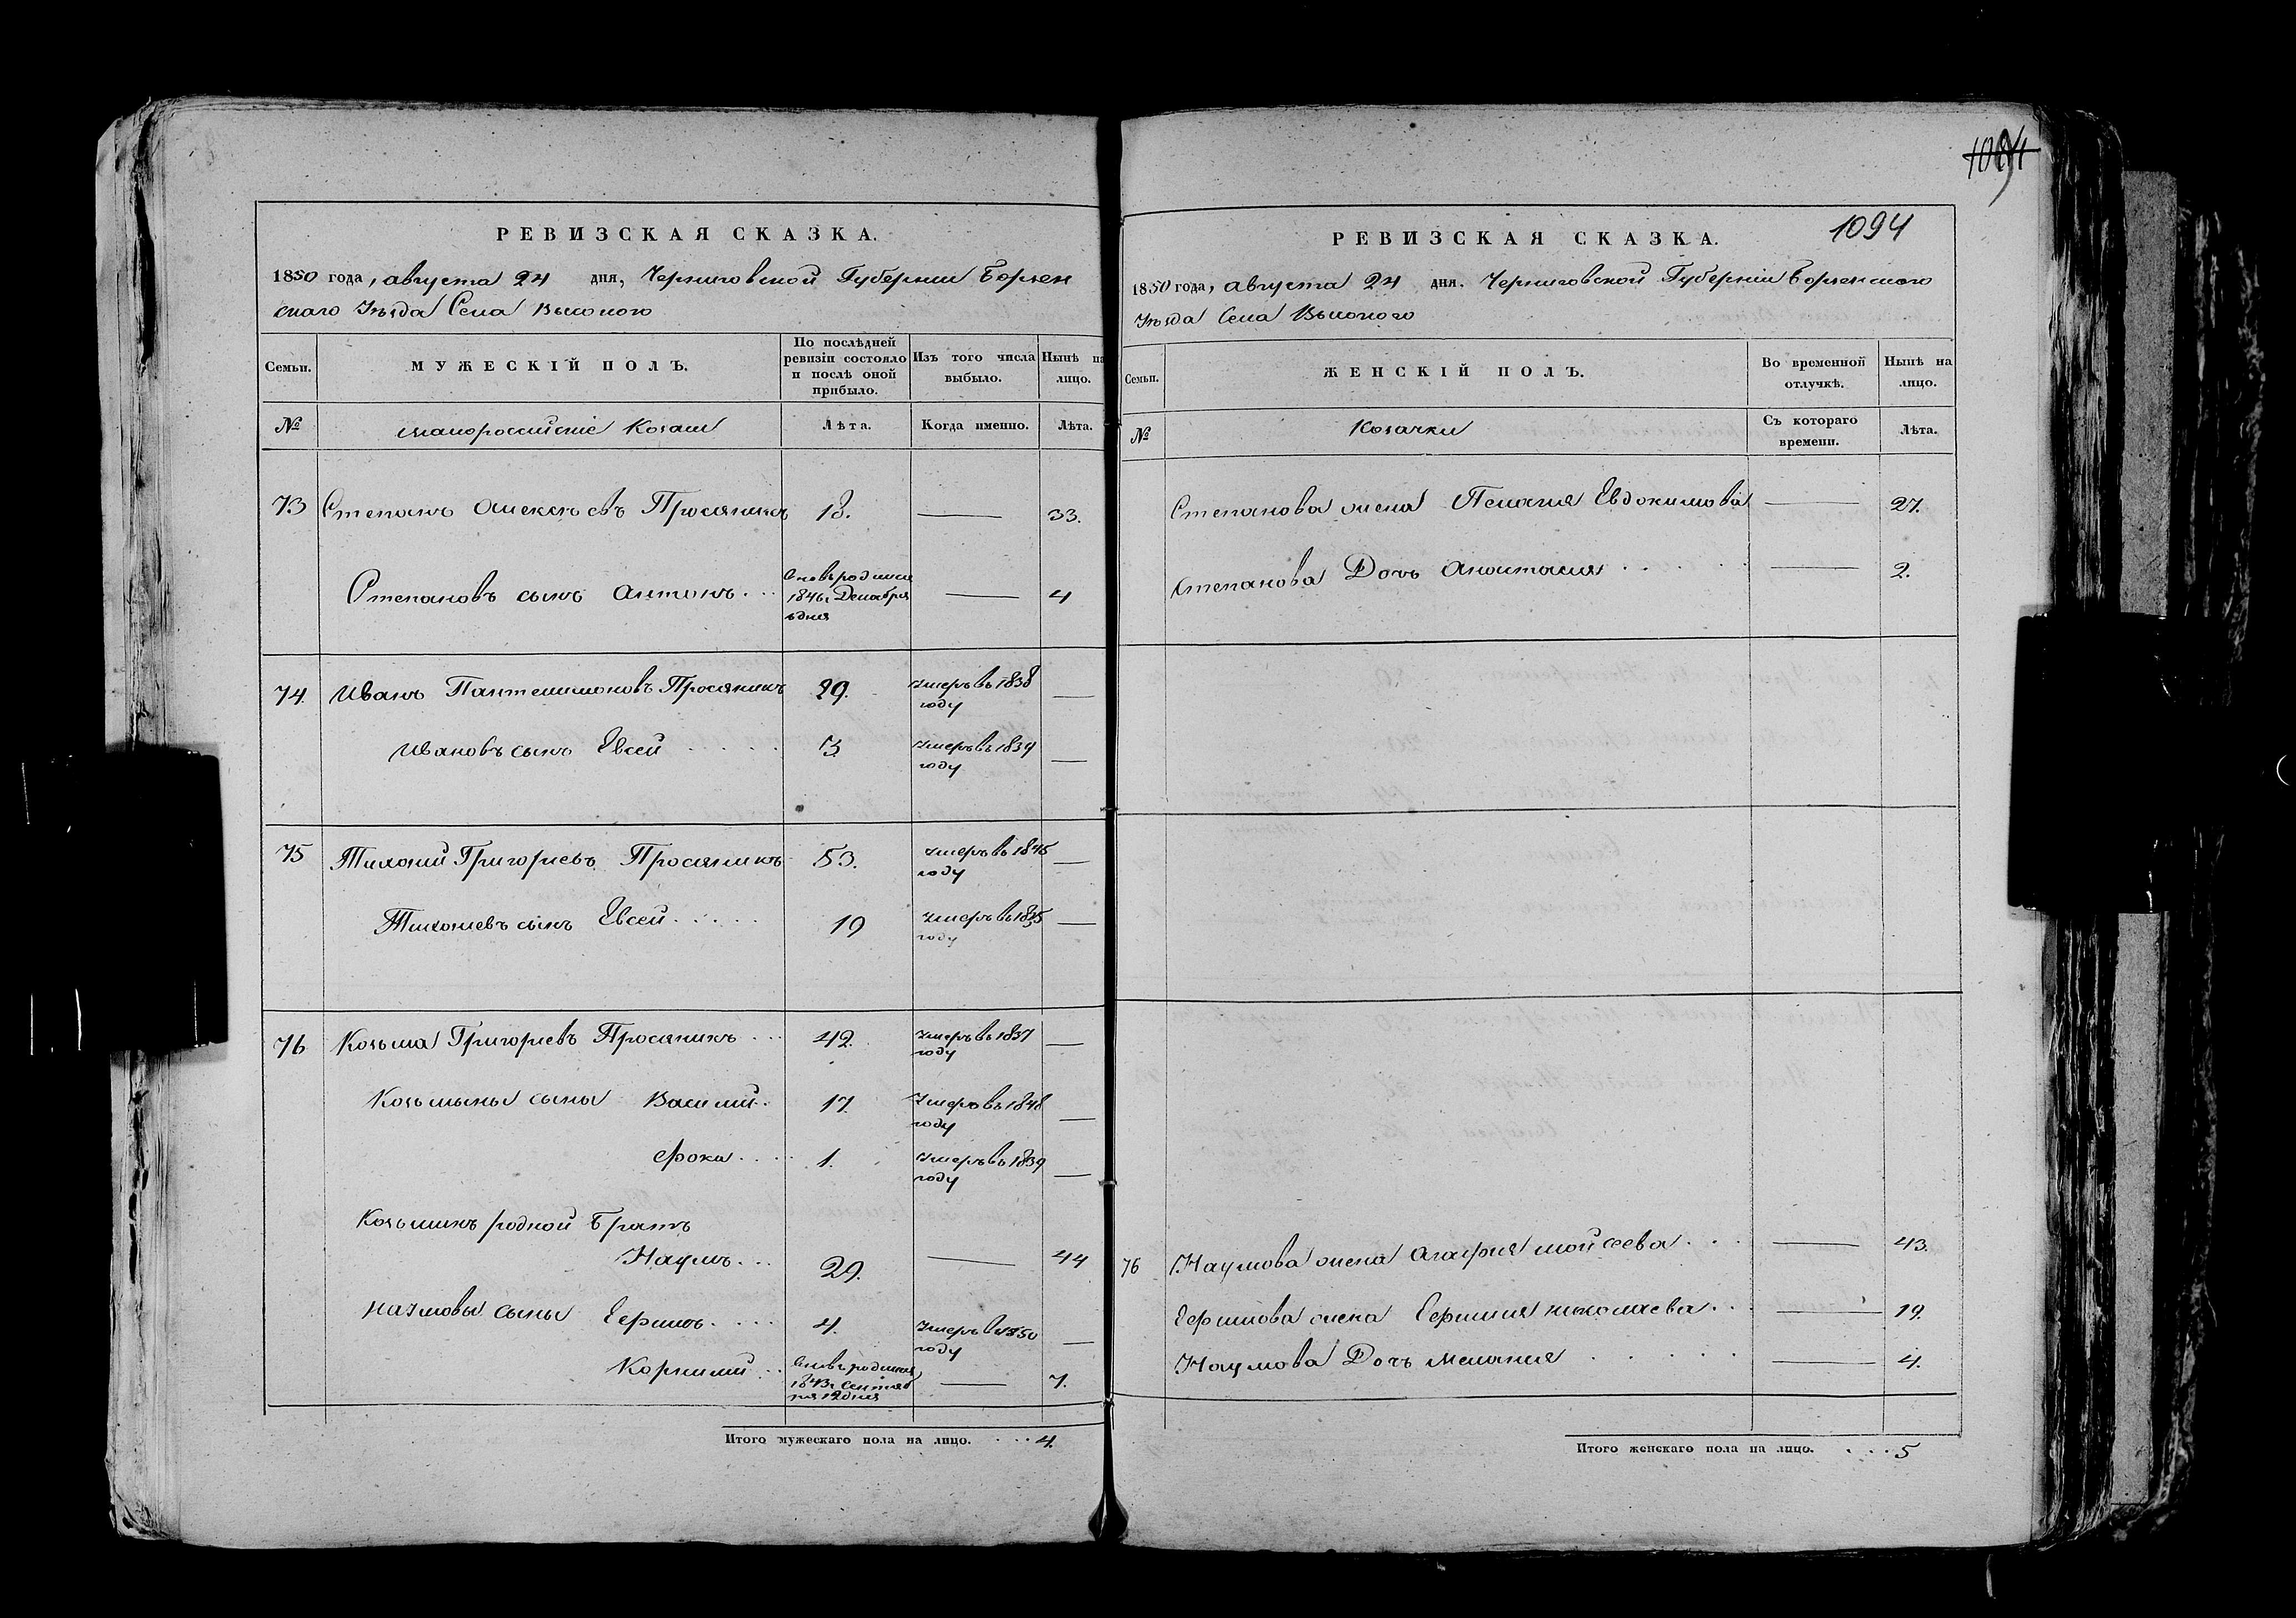 РЕВИЗСКАЯ СКАЗКА.
1850 года, августа 24 дня, Черниговской Губернии Борзен
скаго Уѣзда Села Высокого
Семьи.
МУЖЕСКІЙ ПОЛЪ.
По послѣдней ревизіи состояло и послѣ оной прибыло.
Изъ того числа выбыло.
Нынѣ на лицо.
№
малороссийские Козаки
Лѣта.
Когда именно.
Лѣта.
73 Степанъ Алексѣевъ Просяникъ 18. — 33.
Степановъ сынъ Антонъ . . . вновь родился — 4
1846 г Декабря
дня
74. Иванъ Пантелимоновъ Просяникъ 29. умеръ въ 1838 —
году
Ивановъ сынъ Евсей . . . . 3 умеръ въ 1839 —
году
75 Тихоний Григорьевъ Просяникъ 53. умеръ въ 1845 —
году
Тихониевъ сынъ Евсей . . . . . 19 умеръ въ 1835 —
году
76 Козьма Григорьевъ Просяникъ . . . 42. умеръ въ 1837 —
году
Козьмины сыны Василий . 17. умеръ въ 1848 —
году
Фока . . . . 1. умеръ въ 1839 —
году
Козьминъ родной братъ
Наумъ . . . 29. — 44
Наумовы сыны Ефимъ . . . . 4. умеръ въ 1850 —
году
Корнилий . . вновь родился — 7.
1843 г Сентяб
ря 12 дня
Итого мужескаго пола на лицо. . . . 4.
1094
РЕВИЗСКАЯ СКАЗКА.
1850 года, августа 24 дня. Черниговской Губерніи Борзенскаго
Уѣзда Села Высокого
Семьи.
ЖЕНСКІЙ ПОЛЪ.
Во временной отлучкѣ.
Нынѣ на лицо.
№
Козачки
Съ котораго времени.
Лѣта.
Степанова жена Пелагия Евдокимова — 27.
Степанова Дочь Анастасия . . . . . — 2.
76 Наумова жена Агафия Мойсеева . . . — 43.
Ефимова жена Ефимия Николаева . . . — 19.
Наумова Дочь Мелания . . . . . — 4.
Итого женскаго пола на лицо. . . . 5